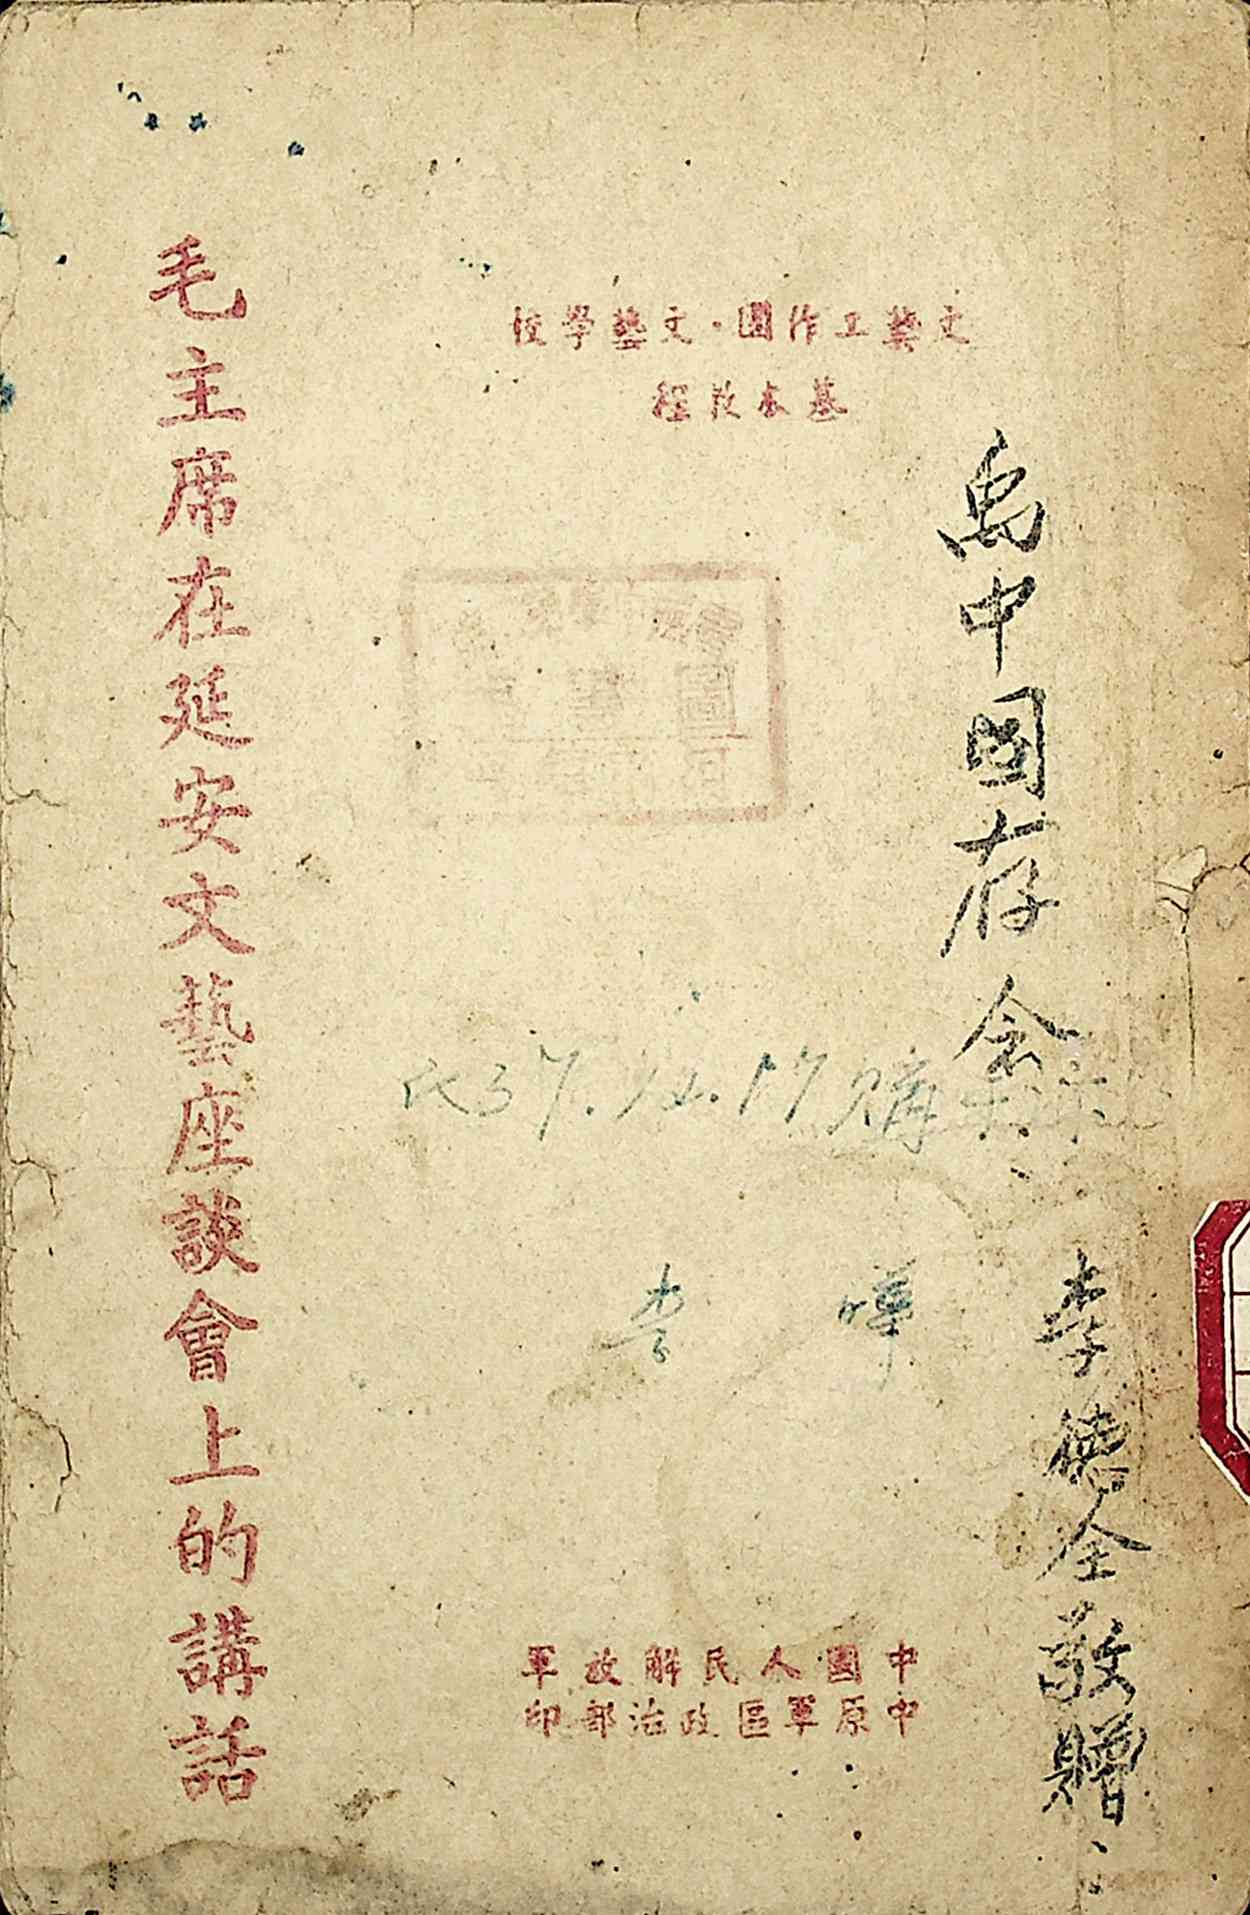 文藝工作團·文藝學校
基本教程
毛主席在延安文藝座談會上的講話
禹中國存念
李德全敬贈
37.12.17購
李 曄
中國人民解放軍
中原軍區政治部印